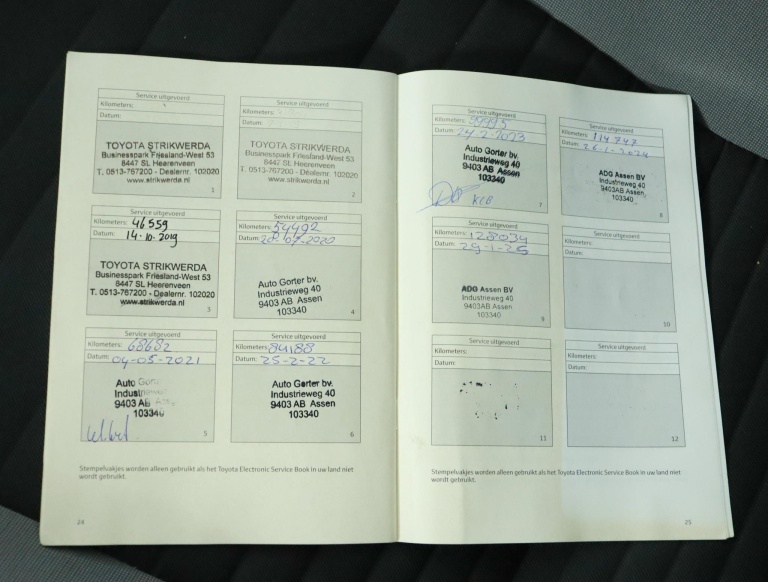 Service uitgevoerd
Kilometers:
Datum:
TOYOTA STRIKWERDA
Businesspark Friesland-West 53
8447 SL Heerenveen
T. 0513-767200 - Dealernr. 102020
www.strikwerda.nl
1
Service uitgevoerd
Kilometers:
Datum:
TOYOTA STRIKWERDA
Businesspark Friesland-West 53
8447 SL Heerenveen
T. 0513-767200 - Dealernr. 102020
www.strikwerda.nl
2
Service uitgevoerd
Kilometers: 46559
Datum: 14-10-2019
TOYOTA STRIKWERDA
Businesspark Friesland-West 53
8447 SL Heerenveen
T. 0513-767200 - Dealernr. 102020
www.strikwerda.nl
3
Service uitgevoerd
Kilometers: 54492
Datum: 20-07-2020
Auto Gorter bv.
Industrieweg 40
9403 AB Assen
103340
4
Service uitgevoerd
Kilometers: 68682
Datum: 04-05-2021
Auto Gorter
Industrieweg
9403 AB Assen
103340
5
Service uitgevoerd
Kilometers: 84188
Datum: 25-2-22
Auto Gorter bv.
Industrieweg 40
9403 AB Assen
103340
6
Stempelvakjes worden alleen gebruikt als het Toyota Electronic Service Book in uw land niet
wordt gebruikt.
24
Service uitgevoerd
Kilometers: 99995
Datum: 24-2-2023
Auto Gorter bv.
Industrieweg 40
9403 AB Assen
103340
7
Service uitgevoerd
Kilometers: 114747
Datum: 26-1-2024
ADG Assen BV
Industrieweg 40
9403 AB Assen
103340
8
Service uitgevoerd
Kilometers: 128034
Datum: 29-1-25
ADG Assen BV
Industrieweg 40
9403 AB Assen
103340
9
Service uitgevoerd
Kilometers:
Datum:
10
Service uitgevoerd
Kilometers:
Datum:
11
Service uitgevoerd
Kilometers:
Datum:
12
Stempelvakjes worden alleen gebruikt als het Toyota Electronic Service Book in uw land niet
wordt gebruikt.
25